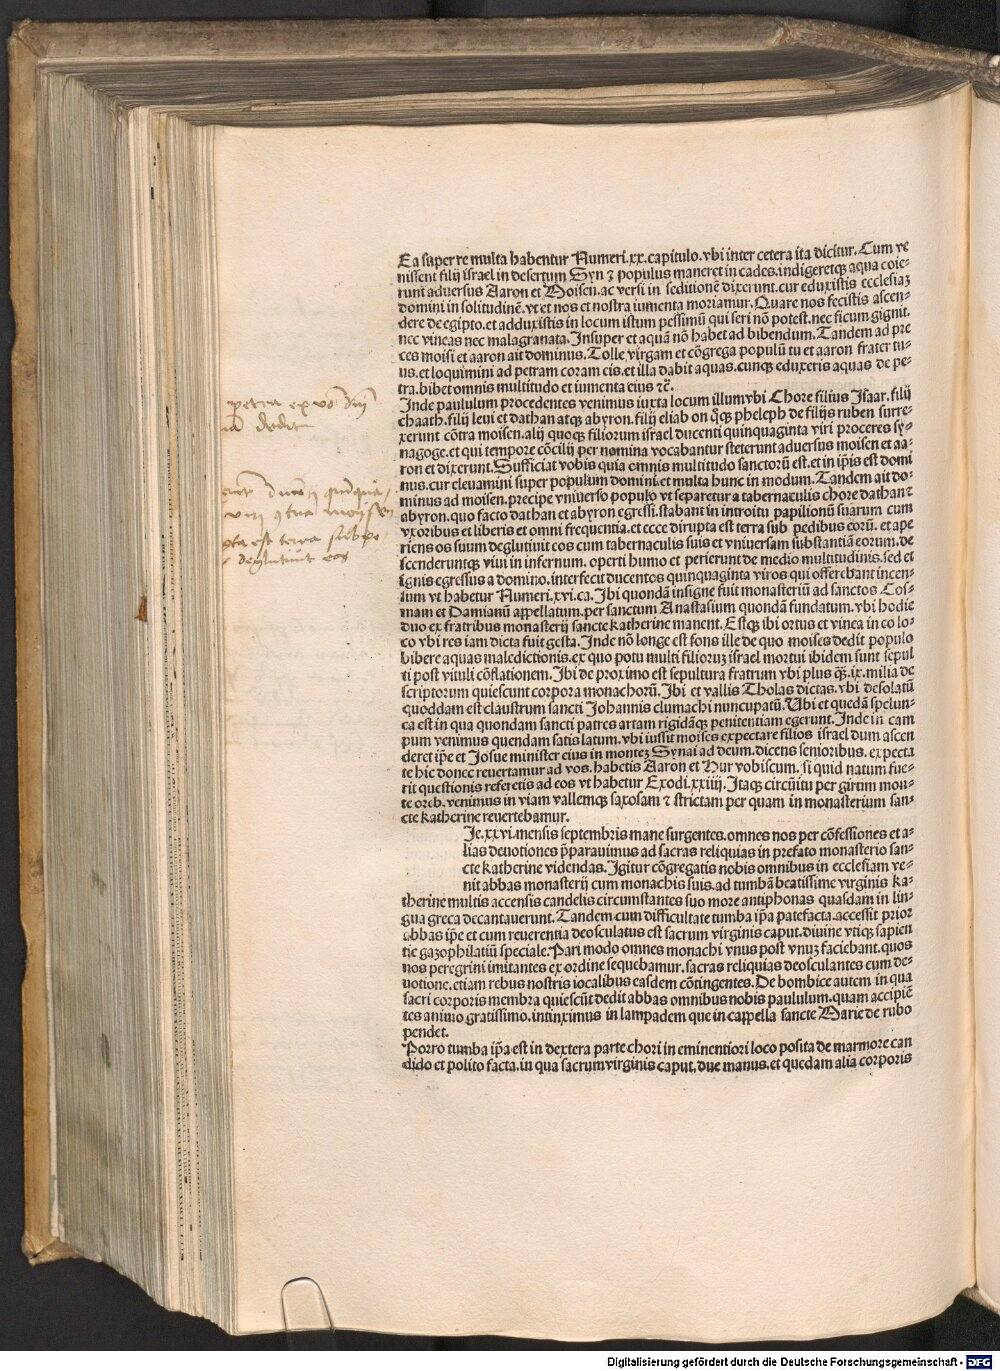 Ea super re multa habentur Numeri.xx.capitulo.vbi inter cetera ita dicitur. Cum ve
nissent filij israel in desertum Syn ⁊ populus maneret in cades.indigeretqȝ aqua coie⸗
runt aduersus Aaron et Moisen.ac versi in seditionē dixerunt.cur eduxistis ecclesiaȝ
domini in solitudinē.vt et nos et nostra iumenta moriamur. Quare nos fecistis ascen⸗
dere de egipto.et adduxistis in locum istum pessimū qui seri nō potest.nec ficum gignit.
nec vineas nec malagranata. Insuper et aquā nō habet ad bibendum. Tandem ad pre
ces moisi et aaron ait dominus. Tolle virgam et cōgrega populū tu et aaron frater tu⸗
us.et loquimini ad petram coram eis.et illa dabit aquas.cunqȝ eduxeris aquas de pe⸗
tra.bibet omnis multitudo et iumenta eius ⁊c̄.
Inde paululum procedentes venimus iuxta locum illum vbi Chore filius Isaar.filij
chaath.filij leui et dathan atqȝ abyron.filij eliab on qȝ̄ pheleph de filijs ruben surre⸗
xerunt cōtra moisen.alij quoqȝ filiorum israel ducenti quinquaginta viri proceres sy⸗
nagoge.et qui tempore cōcilij per nomina vocabantur steterunt aduersus moisen et aa⸗
ron et dixerunt. Sufficiat vobis quia omnis multitudo sanctorū est.et in ip̄is est domi
nus.cur eleuamini super populum domini.et multa hunc in modum. Tandem ait do⸗
minus ad moisen.precipe vniuerso populo vt separetur a tabernaculis chore dathan ⁊
abyron.quo facto dathan et abyron egressi.stabant in introitu papilionū suarum cum
vxoribus et liberis et omni frequentia.et ecce dirupta est terra sub pedibus eorū.et ape
riens os suum deglutiuit eos cum tabernaculis suis et vniuersam substantiā eorum.de
scenderuntqȝ viui in infernum. operti humo et perierunt de medio multitudinis.sed et
ignis egressus a domino.interfecit ducentos quinquaginta viros qui offerebant incen⸗
sum vt habetur Numeri.xvi.ca. Ibi quondā insigne fuit monasteriū ad sanctos Cos⸗
mam et Damianū appellatum.per sanctum Anastasium quondā fundatum.vbi hodie
duo ex fratribus monasterij sancte katherine manent. Estqȝ ibi ortus et vinea in eo lo⸗
co vbi res iam dicta fuit gesta. Inde nō longe est fons ille de quo moises dedit populo
bibere aquas maledictionis.ex quo potu multi filioruȝ israel mortui ibidem sunt sepul
ti post vituli cōflationem. Ibi de proximo est sepultura fratrum vbi plus qȝ̄.ix.milia de
scriptorum quiescunt corpora monachorū. Ibi et vallis Tholas dictas.vbi desolatū
quoddam est claustrum sancti Johannis climachi nuncupatū. Ubi et quedā spelun⸗
ca est in qua quondam sancti patres artam rigidāqȝ penitentiam egerunt. Inde in cam
pum venimus quendam satis latum.vbi iussit moises expectare filios israel dum ascen
deret ip̄e et Josue minister eius in monteȝ Synai ad deum.dicens senioribus.expecta
te hic donec reuertamur ad vos.habetis Aaron et Hur vobiscum.si quid natum fue⸗
rit questionis referetis ad eos vt habetur Exodi.xxiiij. Itaqȝ circūitu per girum mon⸗
te oreb.venimus in viam vallemqȝ saxosam ⁊ strictam per quam in monasterium san⸗
cte katherine reuertebamur.
Ie.xxvi.mensis septembris mane surgentes.omnes nos per cōfessiones et a⸗
lias deuotiones p̄parauimus ad sacras reliquias in prefato monasterio san⸗
cte katherine videndas. Igitur cōgregatis nobis omnibus in ecclesiam ve⸗
nit abbas monasterij cum monachis suis.ad tumbā beatissime virginis ka⸗
therine multis accensis candelis circumstantes suo more antiphonas quasdam in lin⸗
gua greca decantauerunt. Tandem cum difficultate tumba ip̄a patefacta.accessit prior
abbas ip̄e et cum reuerentia deosculatus est sacrum virginis caput.diuine vtiqȝ sapien
tie gazophilatiū speciale. Pari modo omnes monachi vnus post vnuȝ faciebant.quos
nos peregrini imitantes ex ordine sequebamur.sacras reliquias deosculantes cum de⸗
uotione.etiam rebus nostris iocalibus easdem cōtingentes. De bombice autem in qua
sacri corporis membra quiescūt dedit abbas omnibus nobis paululum.quam accipiē
tes animo gratissimo.intinximus in lampadem que in cappella sancte Marie de rubo
pendet.
Porro tumba ip̄a est in dextera parte chori in eminentiori loco posita de marmore can
dido et polito facta.in qua sacrum virginis caput.due manus.et quedam alia corporis
petra
dedit
terra
deglutiuit eos
Digitalisierung gefördert durch die Deutsche Forschungsgemeinschaft - DFG